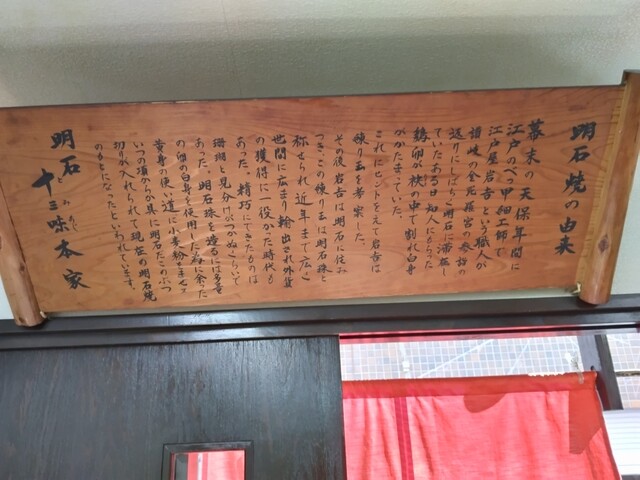 明石焼の由来
幕末の天保年間に
江戸のべっ甲細工師で
江戸屋岩吉という職人が
讃岐の金毘羅宮の参詣の
送りにしばらご明石に滞在し
ていたある日知人にもらった
鶏卵が袂の中で割れ白身
がかたまっていた。
これにヒントをえて岩吉は
練り玉を考案した。
その後岩吉は明石に住み
つきこの練り玉は明石珠と
称せられ近年まで広く
世間に広まり輸出され外貨
の獲得に一役かった時代も
あった。精巧にできたものは
珊瑚と見分けがつかぬくらいで
あった。明石珠を造るには多量
の卵の白身を使用した為に余った
黄身の使い道に小麦粉をまぜ
いつの頃からか具に明石だこのぶつ
切りが入れられて現在の明石焼
のもとになったといわれています。
明石
とみあじ
十三味本家